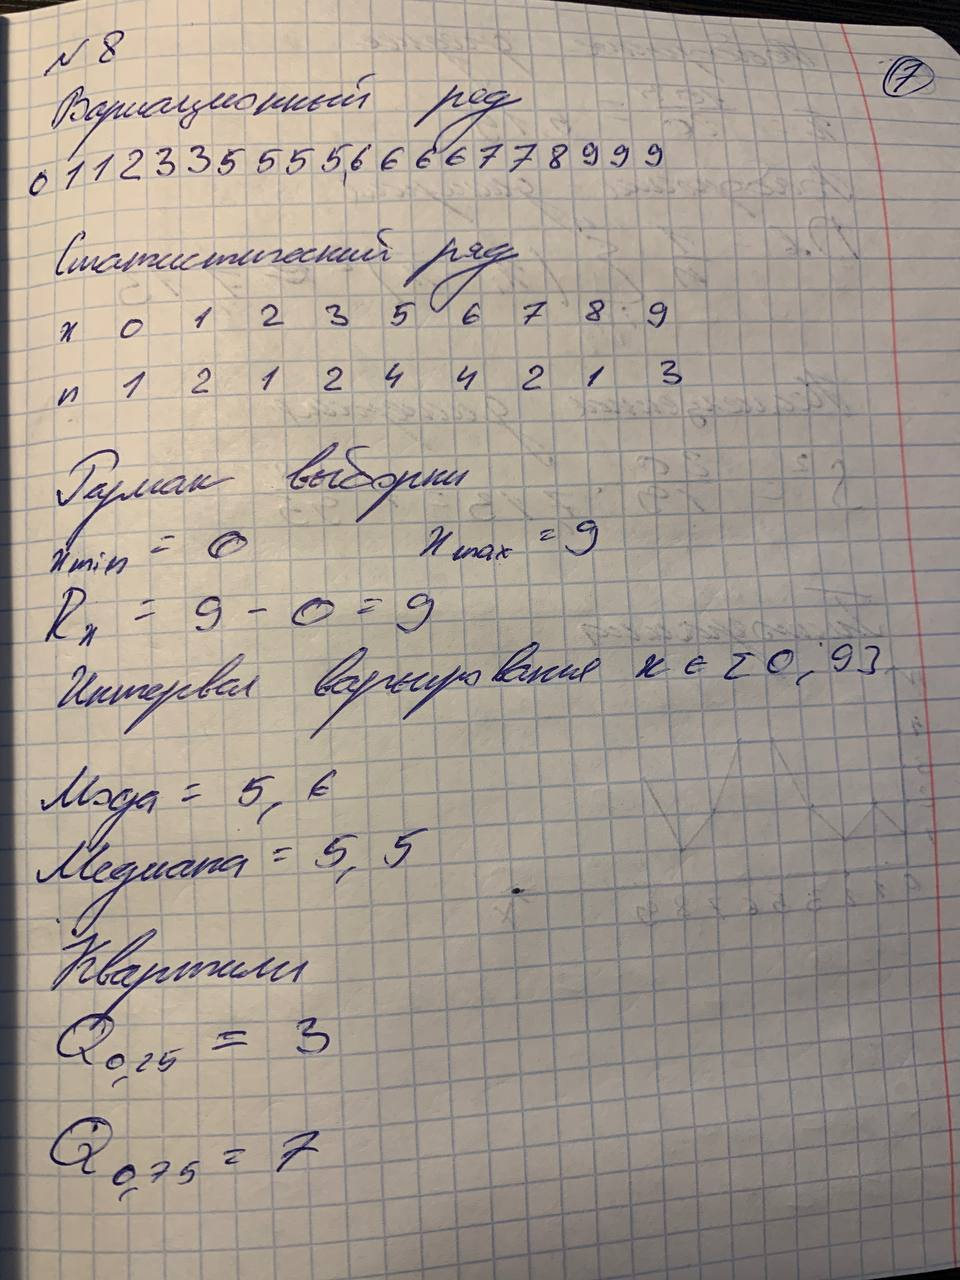 N 8
7
Вариационный ряд
0 1 1 2 3 3 5 5 5 5, 6 6 6 6 7 7 8 9 9 9
Статистический ряд
x 0 1 2 3 5 6 7 8 9
n 1 2 1 2 4 4 2 1 3
Размах выборки
x min = 0 x max = 9
R x = 9 - 0 = 9
Интервал варьирования x ∈ [0; 9]
Мода = 5, 6
Медиана = 5, 5
Квартили
Q 0,25 = 3
Q 0,75 = 7